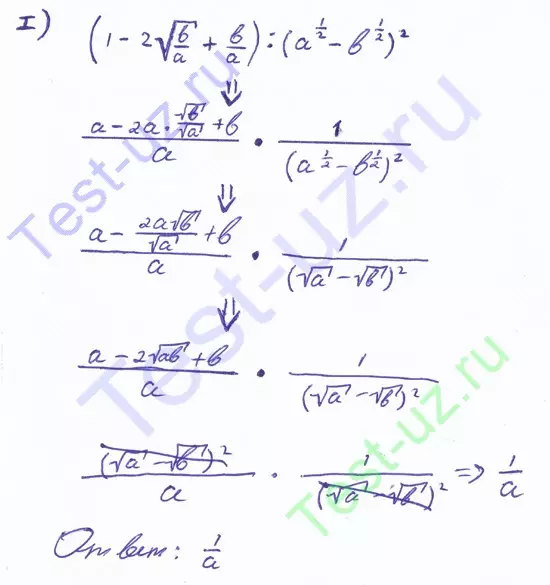 I) (1 - 2√(в/a) + в/a) : (a^(1/2) - в^(1/2))²
⇓
(a - 2a · √в/√a + в)/a · 1/(a^(1/2) - в^(1/2))²
⇓
(a - 2a√в/√a + в)/a · 1/(√a - √в)²
⇓
(a - 2√aв + в)/a · 1/(√a - √в)²
(√a - √в)²/a · 1/(√a - √в)² ⇒ 1/a
Ответ: 1/a
Test-uz.ru
Test-uz.ru
Test-uz.ru